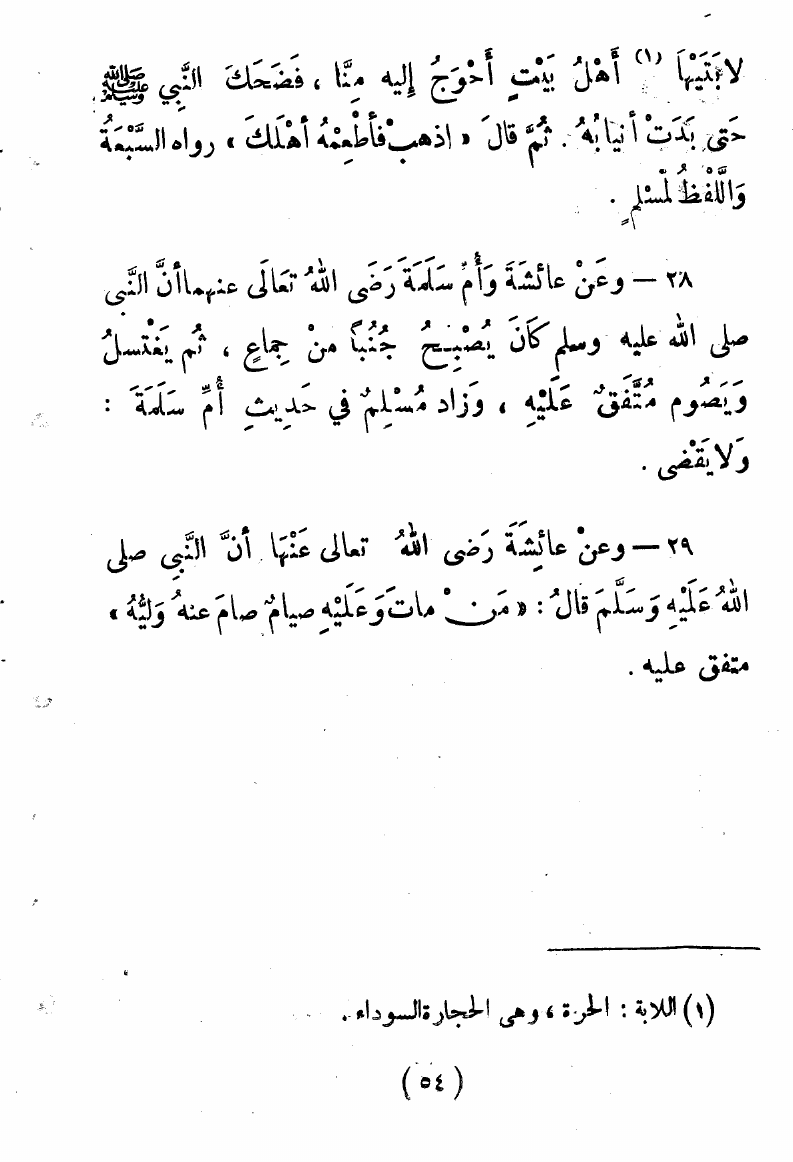 لَابَتَيْهَا (١) أَهْلُ بَيْتٍ أَحْوَجُ إليه مِنَّا ، فَضَحَكَ النَّبِي ﷺ
حَتى بَدَتْ أنيَابُهُ . ثُمَّ قالَ « اذهبْ فأَطْعِمْهُ أهْلَكَ » رواه السَّبْعَةُ
وَاللَّفْظُ لمسْلمٍ .
٢٨ — وعَنْ عائشَةَ وَأُمِّ سَلَمَةَ رَضى اللهُ تَعَالَى عنهما أنَّ النَّبى
صلى الله عليه وسلم كَانَ يُصْبِحُ جُنُباً منْ جِماعٍ ، ثُم يَغْتَسلُ
وَيَصُوم مُتَّفَقٌ عَلَيْهِ ، وَزاد مُسْلِمٌ في حَدِيثِ أُمِّ سَلَمَةَ :
وَلا يَقْضى .
٢٩ — وعنْ عائِشَةَ رَضى اللهُ تعالى عَنْهَا أنَّ النَّبِي صلى
اللهُ عَلَيْهِ وَسَلَّمَ قالُ : « مَنْ ماتَ وَعَلَيْهِ صيامٌ صامَ عنهُ وَلِيُّهُ »
متفق عليه .
(١) اللابة : الحرة ، وهى الحجارة السوداء .
( ٥٤ )